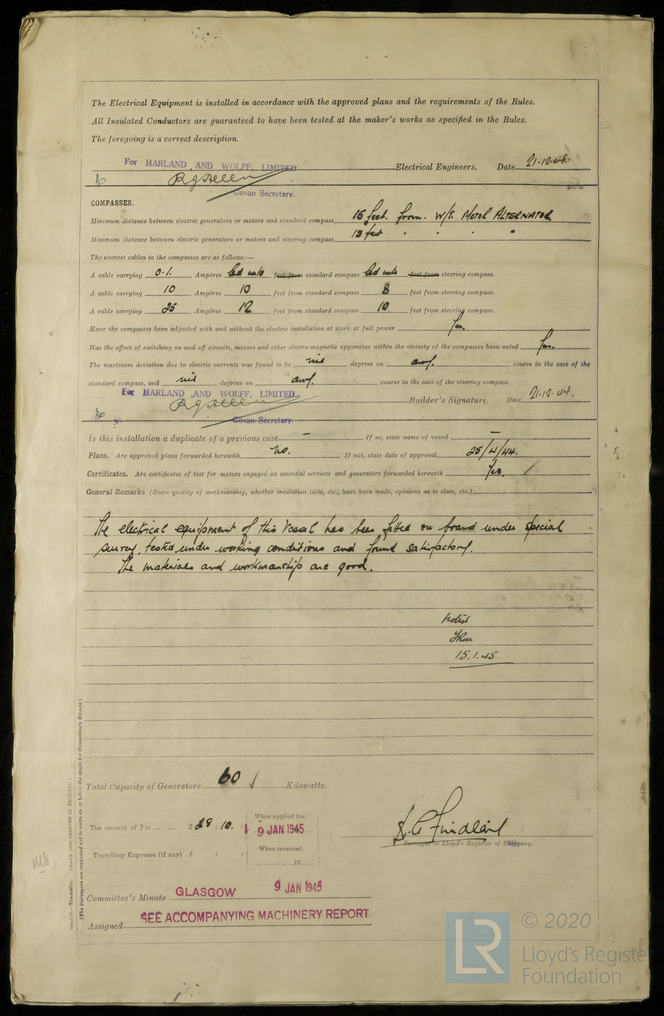 The Electrical Equipment is installed in accordance with the approved plans and the requirements of the Rules.
All Insulated Conductors are guaranteed to have been tested at the maker's works as specified in the Rules.
The foregoing is a correct description.
For HARLAND AND WOLFF, LIMITED
Electrical Engineers. Date 21-12-44
Govan Secretary.
COMPASSES.
Minimum distance between electric generators or motors and standard compass 15 feet from W/T. MOTOR ALTERNATOR
Minimum distance between electric generators or motors and steering compass 13 feet " " "
The nearest cables to the compasses are as follows:—
A cable carrying 0.1 Ampères led into feet from standard compass led into feet from steering compass.
A cable carrying 10 Ampères 10 feet from standard compass 8 feet from steering compass.
A cable carrying 25 Ampères 12 feet from standard compass 10 feet from steering compass.
Have the compasses been adjusted with and without the electric installation at work at full power Yes.
Has the effect of switching on and off circuits, motors and other electro-magnetic apparatus within the vicinity of the compasses been noted Yes.
The maximum deviation due to electric currents was found to be nil degrees on any course in the case of the
standard compass, and nil degrees on any course in the case of the steering compass.
For HARLAND AND WOLFF, LIMITED
Builder's Signature. Date 21-12-44.
Govan Secretary.
Is this installation a duplicate of a previous case — If so, state name of vessel —
Plans. Are approved plans forwarded herewith No. If not, state date of approval 25/4/44.
Certificates. Are certificates of test for motors engaged on essential services and generators forwarded herewith Yes. /
General Remarks (State quality of workmanship, whether insulation tests, etc., have been made, opinions as to class, etc.)
The electrical equipment of this Vessel has been fitted on board under special
survey, tested under working conditions and found satisfactory.
The materials and workmanship are good.
Noted
15.1.45
Total Capacity of Generators 60 / Kilowatts.
The amount of Fee ... ... £28 : 10 :
When applied for,
9 JAN 1945
Surveyor to Lloyd's Register of Shipping.
Travelling Expenses (if any) £ : :
When received,
19
Committee's Minute GLASGOW 9 JAN 1945
Assigned SEE ACCOMPANYING MACHINERY REPORT
(The Surveyors are requested not to write on or below the space for Committee's Minute.)
LR
© 2020
Lloyd's Register
Foundation